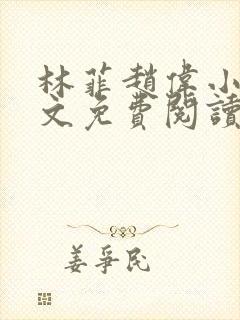 林菲趙偉小
文免費閱讀
姜爭民